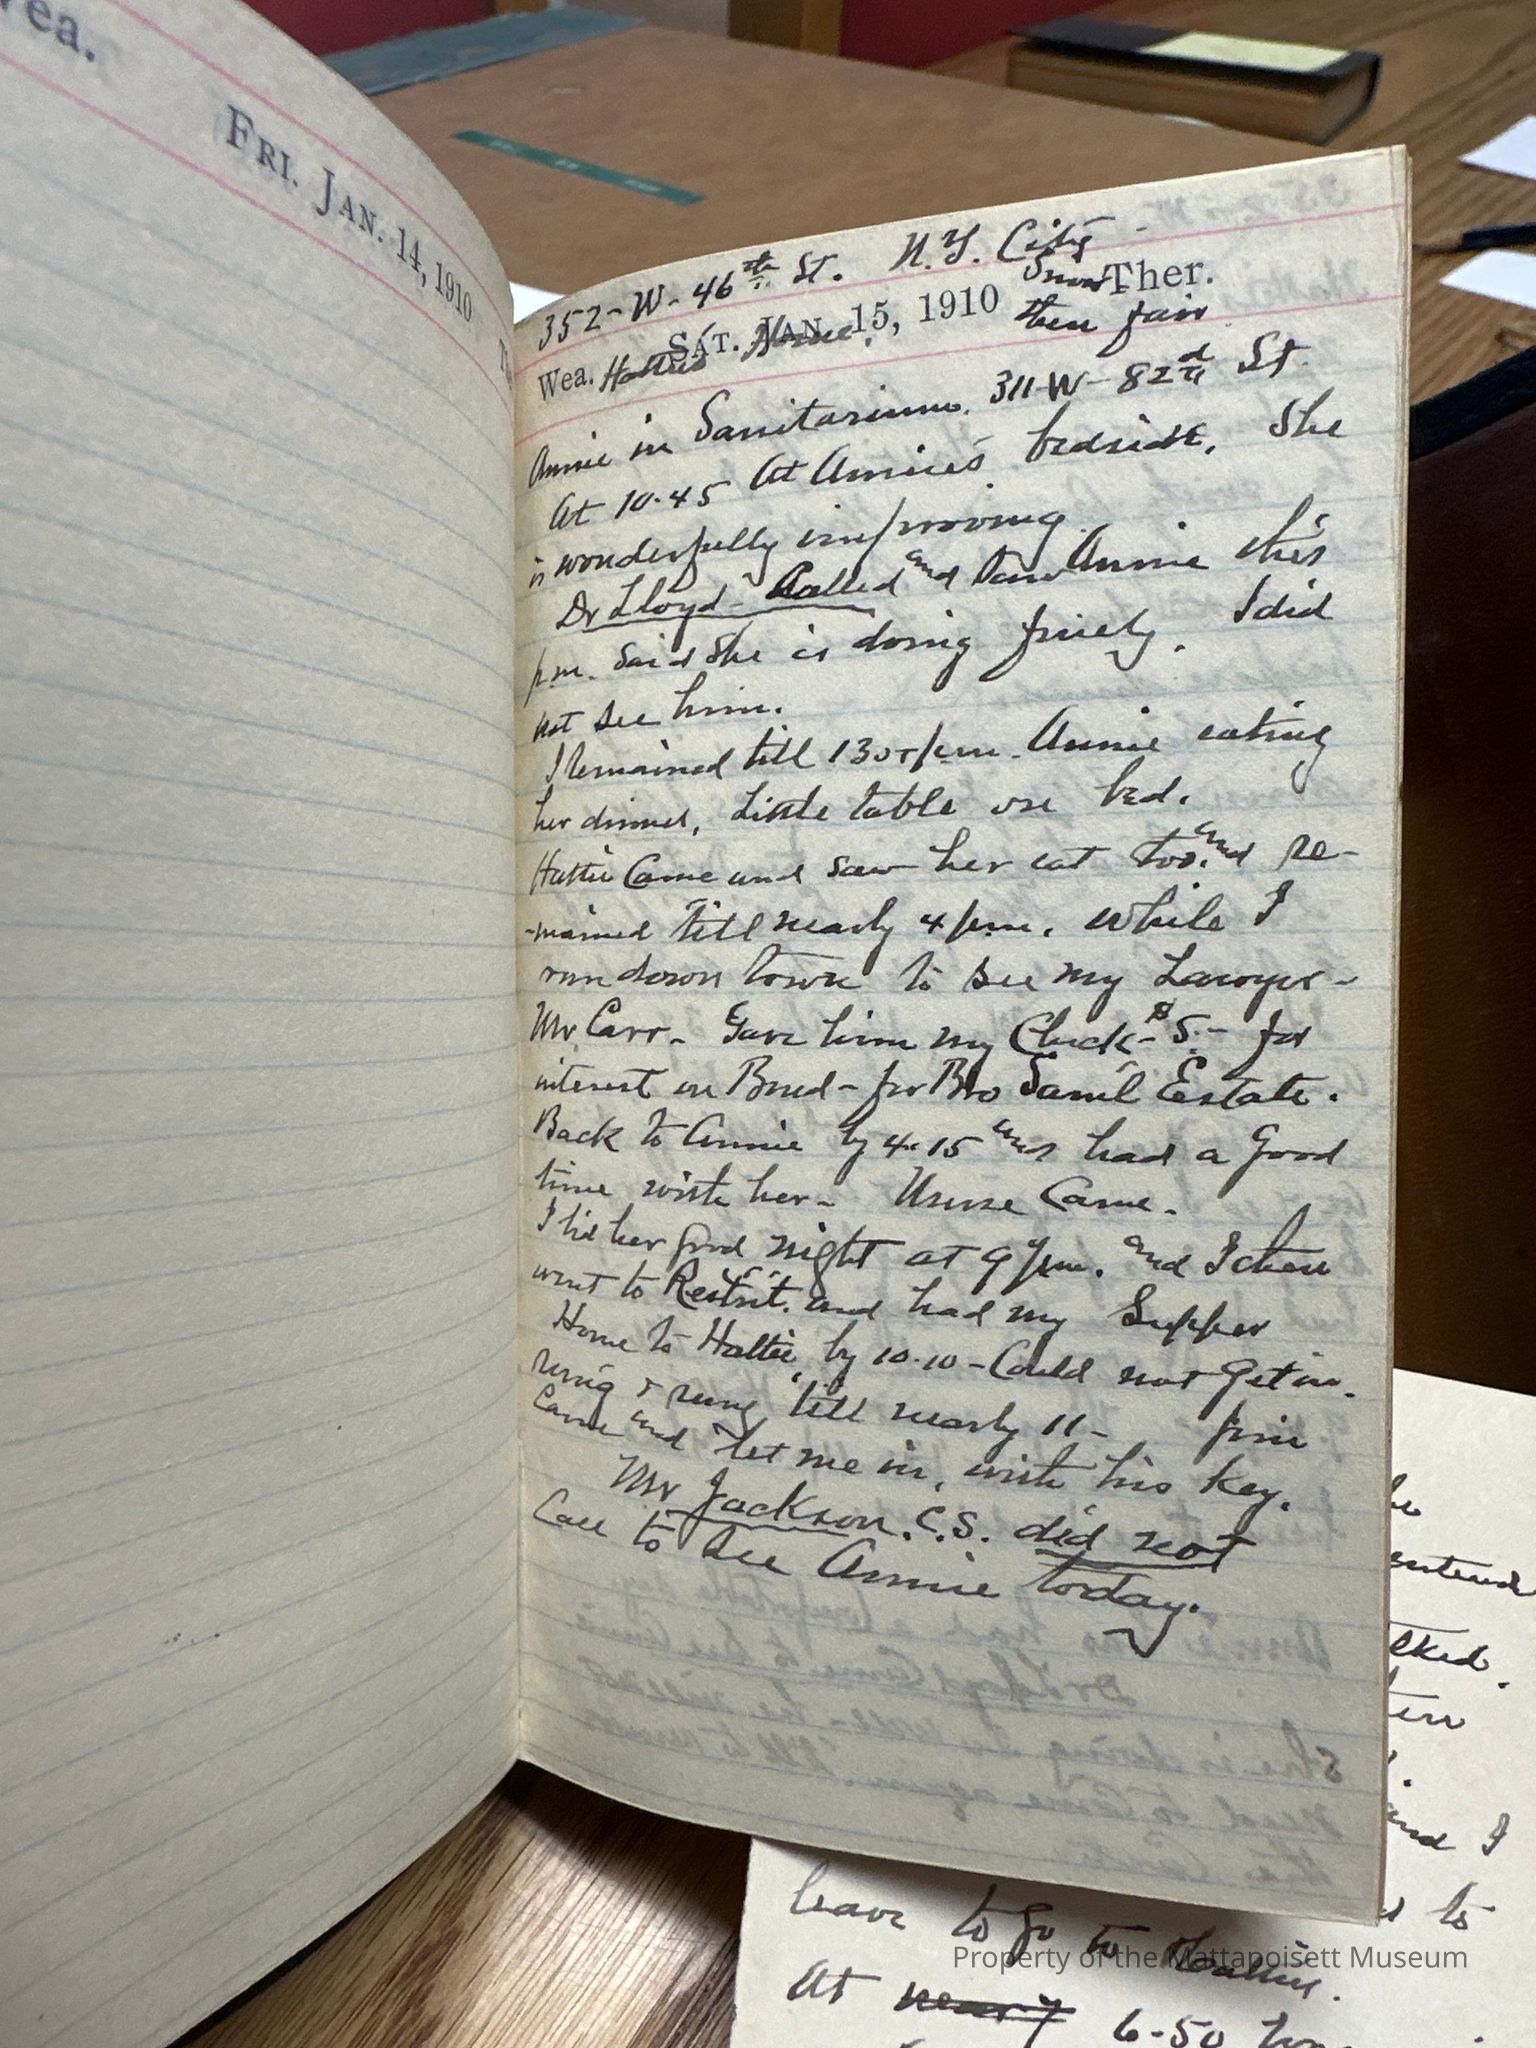 Wea.
FRI. JAN. 14, 1910
352-W-46th St. N.Y. City
Snow Ther.
SAT. JAN. 15, 1910 then fair
Wea. Hattie's Home.
Annie in Sanitarium. 311-W-82d St.
At 10.45 At Annie's bedside. She
is wonderfully improving.
Dr Lloyd - Called and saw Annie this
p.m. Said she is doing finely. I did
not see him.
I remained till 130 p.m. Annie eating
her dinner, little table on bed.
Hattie Came and saw her eat too. and re-
-mained till nearly 4 p.m. while I
run down town to see my Lawyer-
Mr Carr. Gave him my Check- $5.- for
interest on Bond- for Bro Saml Estate.
Back to Annie by 4.15 and had a good
time with her- Nurse Came.
I bid her good night at 9 pm. and I then
went to Restrt. and had my Supper
Home to Hattie, by 10.10- Could not get in.
rung & rung till nearly 11- Jim
Came and let me in, with his key.
Mr Jackson. C.S. did not
Call to see Annie today.
entered
and I
to
leave to go to
At nearly 6-50
Property of the Mattapoisett Museum